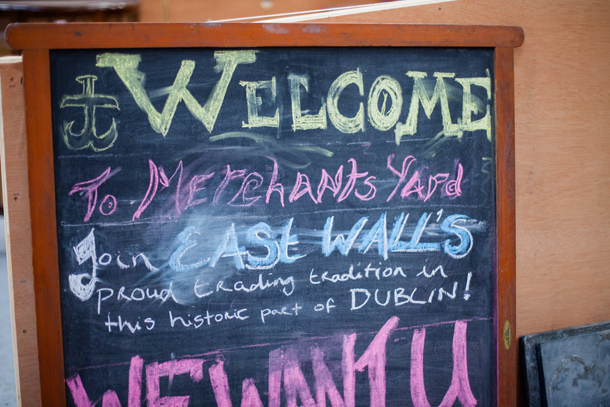 WELCOME
To MERCHANTS YARD
Join EAST WALL'S
proud trading tradition in
this historic part of DUBLIN!
WE WANT U